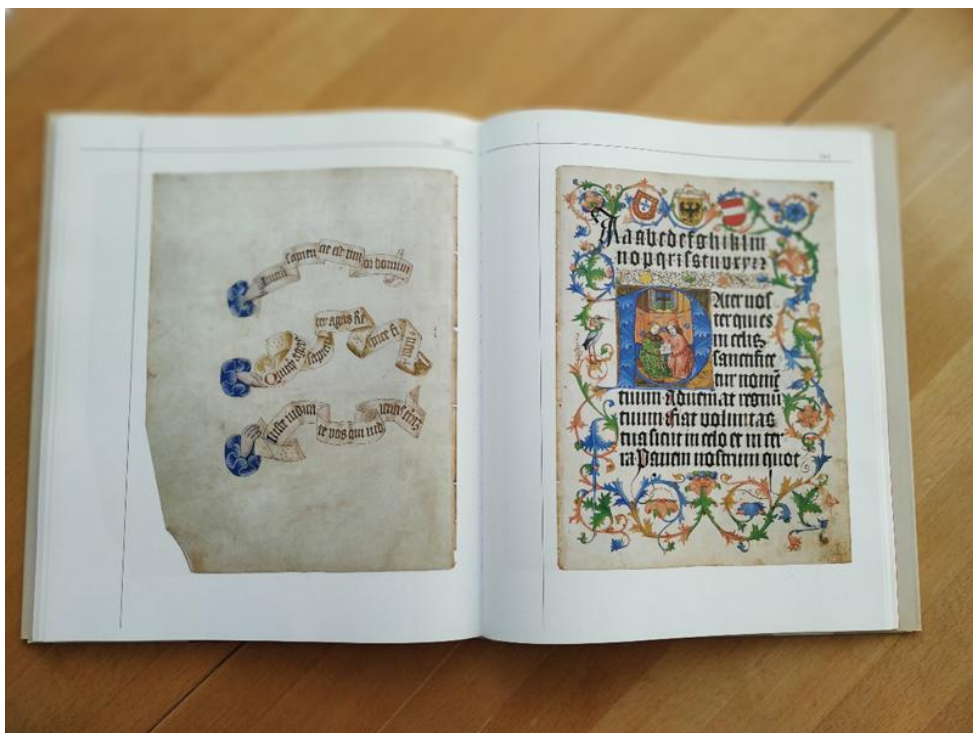 Inicium sapiencie est timor domini
Quitquit agas sapienter agas Re
spice fi
Iuste iudica
te vos qui iud
terram
Aagbcdefghiklm
nopqrſstuvxyzz
Pater nos
ter qui es
in celis
sanctifice
tur nomē
tuum Adueniat regnū
tuum fiat voluntas
tua sicut in celo et in ter
ra Panem nostrum quot